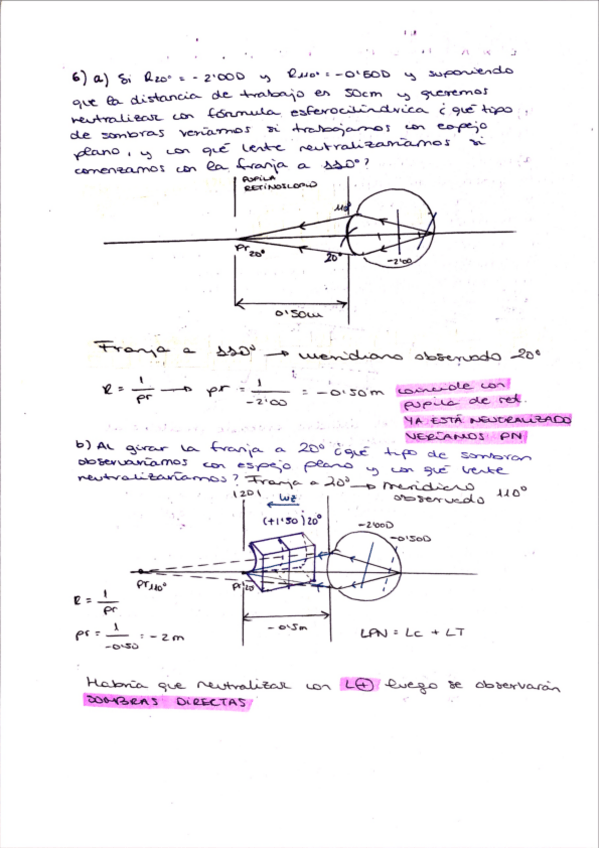 6) a) Si R20° = -2'00D y R110° = -0'50D y suponiendo
que la distancia de trabajo es 50cm y queremos
neutralizar con fórmula esferocilíndrica ¿qué tipo
de sombras veríamos si trabajamos con espejo
plano, y con qué lente neutralizaríamos si
comenzamos con la franja a 110°?
PUPILA
RETINOSCOPIO
110°
Pr20°
20°
-2'00
0'50m
Franja a 110° → meridiano observado 20°
R = 1/pr → pr = 1/-2'00 = -0'50m
coincide con
pupila de ret.
YA ESTÁ NEUTRALIZADO
VERÍAMOS PN
b) Al girar la franja a 20° ¿qué tipo de sombras
observaríamos con espejo plano y con qué lente
neutralizaríamos? Franja a 20° → meridiano
observado 110°
luz
(+1'50)20°
-2'00D
-0'50D
pr110°
Pr20
R = 1/pr
pr = 1/-0'50 = -2m
-0'5m
LPN = LC + LT
Habría que neutralizar con L⊕ luego se observarán
SOMBRAS DIRECTAS